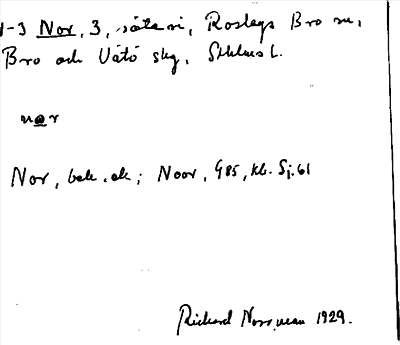 1-3 Nor, 3, säteri, Roslags Bro sn,
Bro och Vätö skg, Sthlms l.
nør
Nor, bek. ok; Noor, G85, kb. Sj. 61
Richard Norrman 1929.